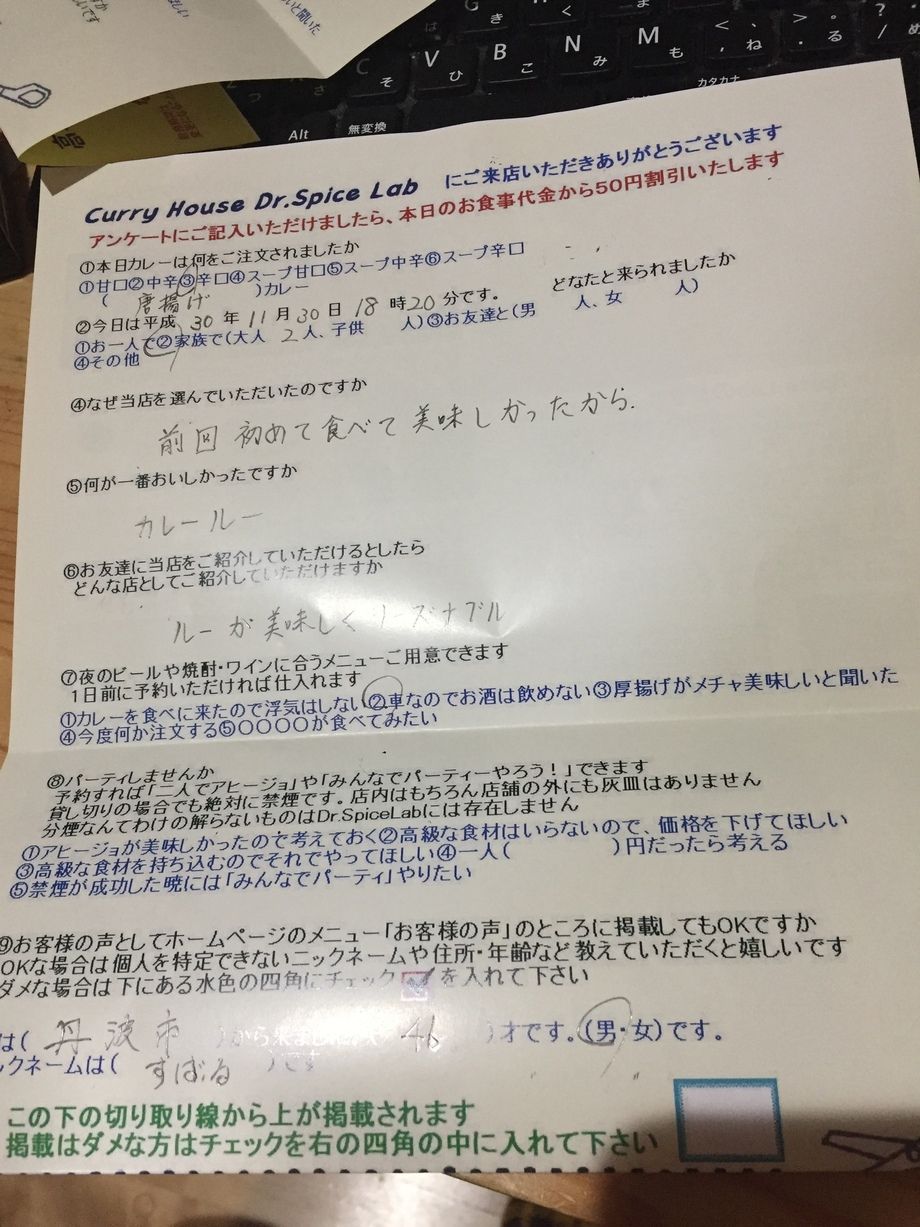 G き
H く
ま
C そ
V ひ
B こ
N み
M も
< 、 , ね
> 。 . る
? ・ / め
Alt
無変換
カタカナ
いと聞いた
Curry House Dr.Spice Lab にご来店いただきありがとうございます
アンケートにご記入いただけましたら、本日のお食事代金から50円割引いたします
①本日カレーは何をご注文されましたか
①甘口②中辛③辛口④スープ甘口⑤スープ中辛⑥スープ辛口
( 唐揚げ )カレー
②今日は平成 30 年 11 月 30 日 18 時 20 分です。 どなたと来られましたか
①お一人で②家族で(大人 2 人、子供 人)③お友達と(男 人、女 人)
④その他
④なぜ当店を選んでいただいたのですか
前回 初めて食べて美味しかったから.
⑤何が一番おいしかったですか
カレールー
⑥お友達に当店をご紹介していただけるとしたら
どんな店としてご紹介していただけますか
ルーが美味しくリーズナブル
⑦夜のビールや焼酎・ワインに合うメニューご用意できます
1日前に予約いただければ仕入れます
①カレーを食べに来たので浮気はしない②車なのでお酒は飲めない③厚揚げがメチャ美味しいと聞いた
④今度何か注文する⑤〇〇〇〇が食べてみたい
⑧パーティしませんか
予約すれば「二人でアヒージョ」や「みんなでパーティーやろう!」できます
貸し切りの場合でも絶対に禁煙です。店内はもちろん店舗の外にも灰皿はありません
分煙なんてわけの解らないものはDr.SpiceLabには存在しません
①アヒージョが美味しかったので考えておく②高級な食材はいらないので、価格を下げてほしい
③高級な食材を持ち込むのでそれでやってほしい④一人( )円だったら考える
⑤禁煙が成功した暁には「みんなでパーティ」やりたい
⑨お客様の声としてホームページのメニュー「お客様の声」のところに掲載してもOKですか
OKな場合は個人を特定できないニックネームや住所・年齢など教えていただくと嬉しいです
ダメな場合は下にある水色の四角にチェック を入れて下さい
は( 丹波市 )から来ました 46 )才です。(男・女)です。
ックネームは( すばる )です
この下の切り取り線から上が掲載されます
掲載はダメな方はチェックを右の四角の中に入れて下さい